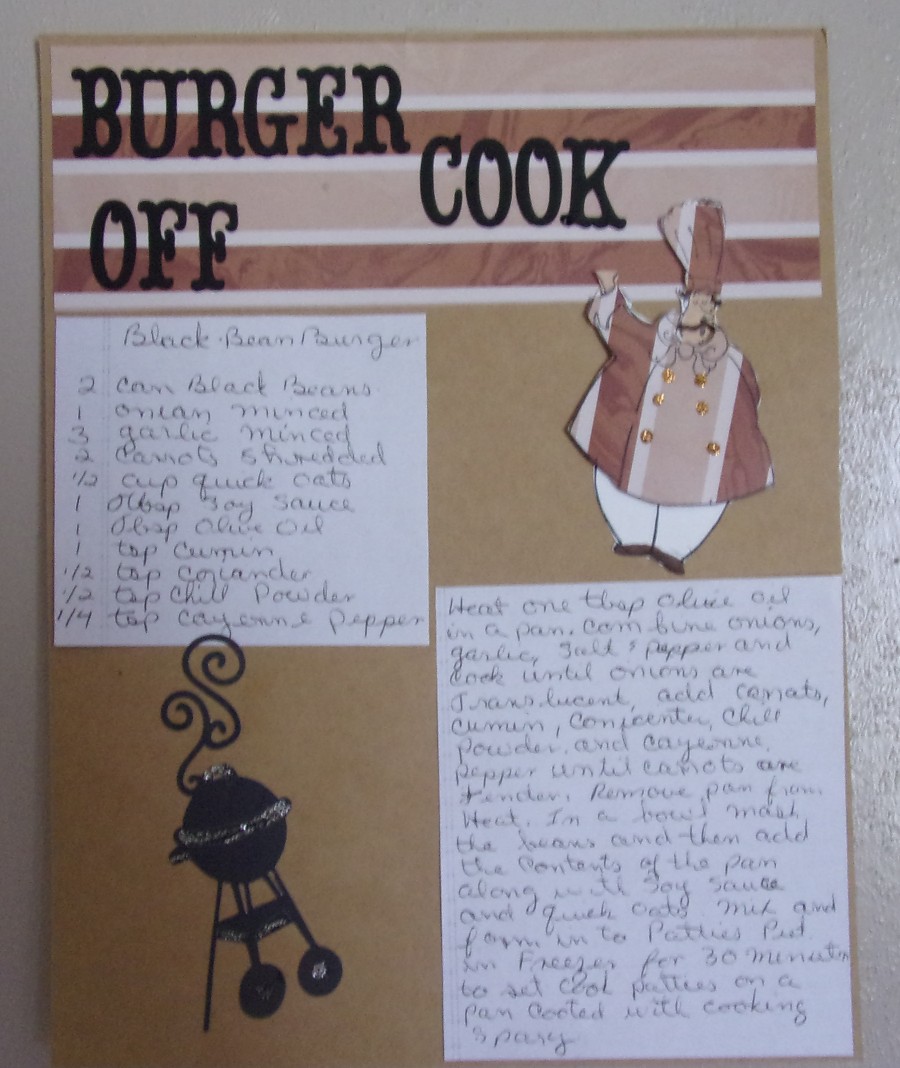 BURGER
COOK
OFF
Black Bean Burger
2 can Black Beans
1 onion minced
3 garlic minced
2 carrots shredded
1/2 cup quick oats
1 tbsp Soy Sauce
1 tbsp Olive Oil
1 tsp Cumin
1/2 tsp coriander
1/2 tsp Chili Powder
1/4 tsp cayenne pepper
Heat one tbsp olive oil
in a pan. Combine onions,
garlic, salt & pepper and
cook until onions are
translucent, add carrots,
cumin, Chili
powder, and cayenne
pepper until carrots are
tender. Remove pan from
Heat. In a bowl mash
the beans and then add
the contents of the pan
along with soy sauce
and quick oats mix and
form in to Patties Put
in Freezer for 30 minutes
to set Cook patties on a
pan cooted with cooking
spary